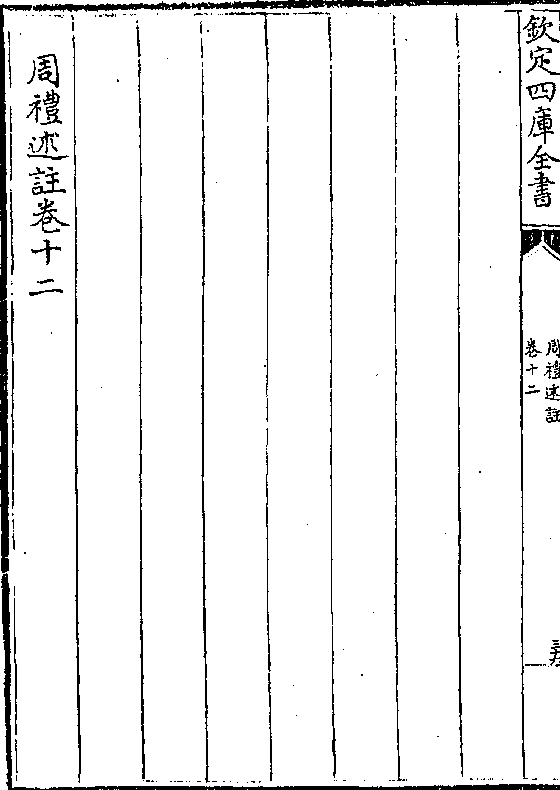 欽定四庫全書
周禮述註
卷十二
周禮述註卷十二